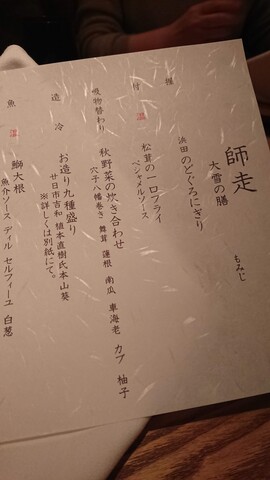 師走
大雪の膳
もみじ
浜田のどぐろにぎり
温
松茸の一口フライ
ベシャメルソース
吸物替わり
秋野菜の炊き合わせ
穴子八幡巻き 舞茸 蓮根 南瓜 車海老 カブ 柚子
造 冷
お造り九種盛り
廿日市吉和 植本直樹氏本山葵
※詳しくは別紙にて。
魚 温
鰤大根
魚介ソース ディル セルフィーユ 白葱